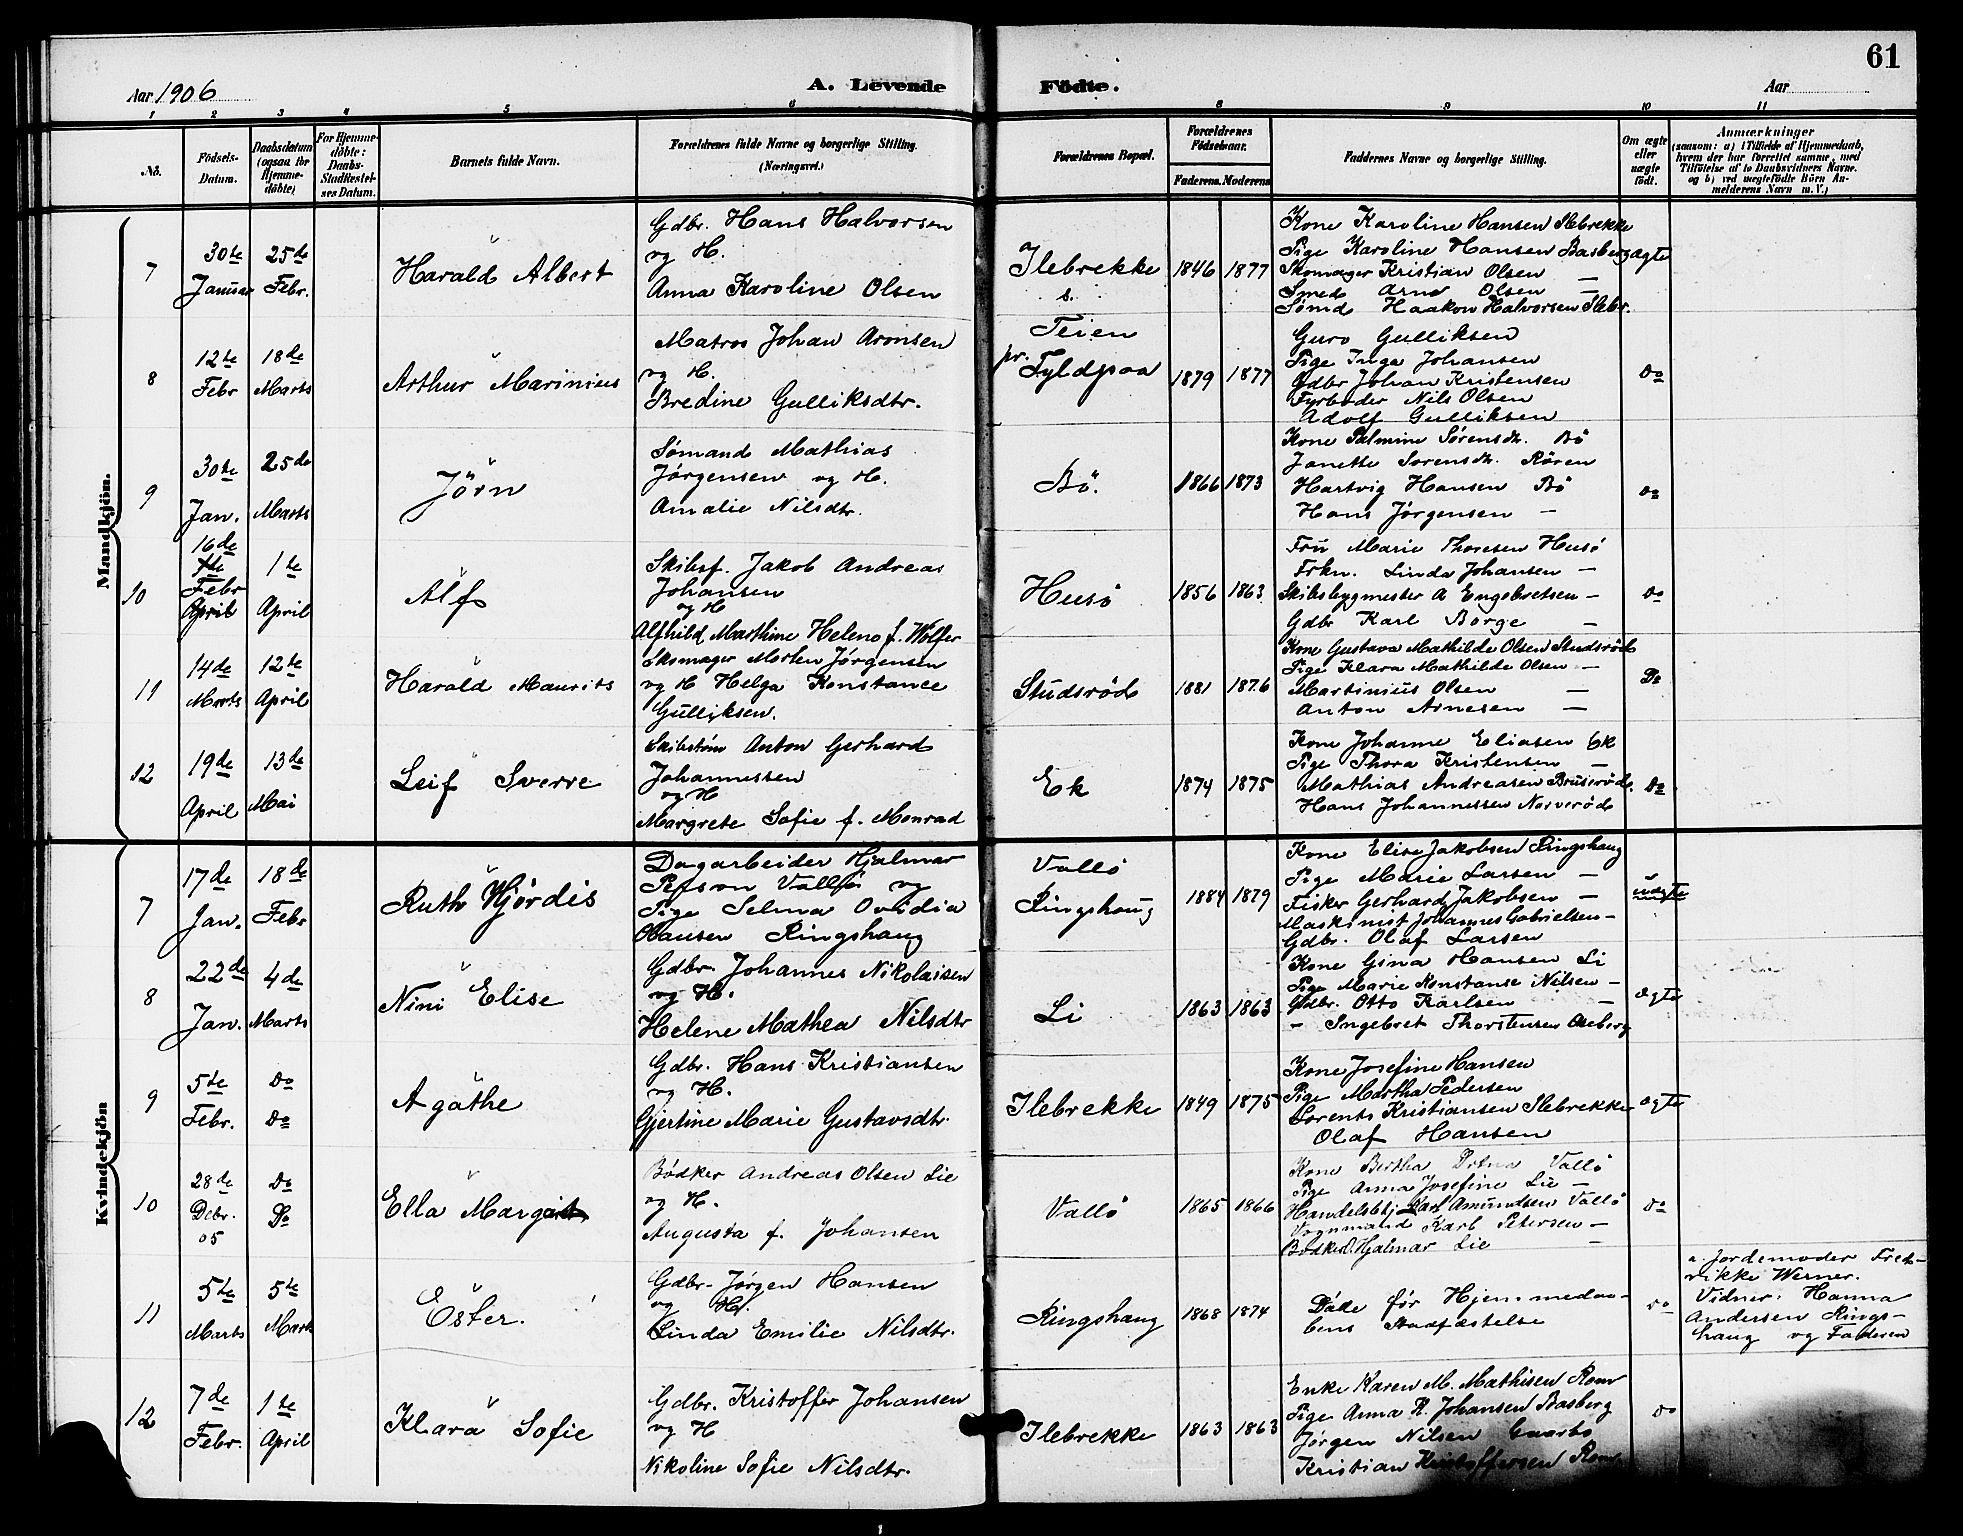 61
Aar 1906
A. Levende Födte.
Aar
1 2 3 4 5 6 8 9 10 11
No.
Födsels-Datum.
Daabsdatum (ogsaa for Hjemme-döbte)
For Hjemme-döbte: Daabs-Stadfæstel-ses Datum.
Barnets fulde Navn.
Forældrenes fulde Navne og borgerlige Stilling. (Næringsvei.)
Forældrenes Bopæl.
Forældrenes Födselsaar.
Faderens. Moderens
Faddernes Navne og borgerlige Stilling.
Om ægte eller uægte födt.
Anmærkninger
(saasom: a) i Tilfælde af Hjemmedaab, hvem der har forrettet samme, med Tilföielse af to Daabsvidners Navne. og b) ved uægtefödte Börn An-melderens Navn m. V.)
Mandkjön.
7
30te Januar
25de Febr.
Harald Albert
Gdbr. Hans Halvorsen
og H.
Anna Karoline Olsen
Ilebrekke
s.
1846 1877
Kone Karoline Hansen Ilebrekke
Pige Karoline Hansen Basberg
Skomager Kristian Olsen —
Smed Arne Olsen —
Sømd Haakon Halvorsen Ilebr.
ægte
8
12te Febr
18de Marts
Arthur Marinius
Matros Johan Aronsen
og H.
Bredine Gulliksdtr.
Teien
pr. Fyldpaa
1879 1877
Guro Gulliksen
Pige Inga Johansen
Gdbr Johan Kristensen
Fyrbøder Nils Olsen
Adolf Gulliksen
Do
9
30te Jan.
25de Marts
Jörn
Sømand Mathias
Jørgensen og H.
Amalie Nilsdtr.
Bö.
1866 1873
Kone Palmine Sørensdr. Bö
Janette Sorensdr. Røren
Hartvig Hansen Bö
Hans Jørgensen -
Do
10
16de
Febr
April
1te April
Alf
Skibsf. Jakob Andreas
Johansen
og H
Alfhild Marthine Helene f. Wølfer
Husö
1856 1863
Fru Marie Thoresen Husö
Frkn. Linda Johansen -
Skibsbygmester A Engebretsen -
Gdbr Karl Borge -
Do
11
14de Marts
12te April
Harald Maurits
Skomager Morten Jørgensen
og H Helga Konstance
Gulliksen.
Studsrød
1881 1876
Kone Gustava Mathilde Olsen Studsrød
Pige Klara Mathilde Olsen -
Martinius Olsen —
Anton Arnesen —
Do
12
19de April
13de Mai
Leif Sverre
Skibstøm Anton Gerhard
Johannessen
og H
Margrete Sofie f. Monrad
Ek
1874 1875
Kone Johanne Eliasen Ek
Pige Thora Kristensen —
Mathias Andreasen Bruserød.
Hans Johannessen Norverød
Do
Kvindekjön
7
17de Jan.
18de Febr
Ruth Hjørdis
Dagarbeider Hjalmar
Vallö og
Pige Selma Ovidia
Hansen Ringshaug
Vallö
Ringshaug
1884 1879
Kone Elise Jakobsen Ringshaug
Pige Marie Larsen -
Fisker Gerhard Jakobsen -
Maskinist Johannes Gabrielsen -
Gdbr. Olaf Larsen
uægte
8
22de Jan.
4de Marts
Nini Elise
Gdbr. Johannes Nikolaisen
og H.
Helene Mathea Nilsdtr
Li
1863 1863
Kone Gina Hansen Li
Pige Marie Konstanse Nilsen -
Gdbr. Otto Karlsen -
- Ingebret Thorstensen Oseberg
ægte
9
5te Febr.
Do Do
Agathe
Gdbr. Hans Kristiansen
og H.
Gjertine Marie Gustavsdtr.
Ilebrekke
1849 1875
Kone Josefine Hansen
Pige Martha Pedersen
Lorents Kristiansen Ilebrekke
Olaf Hansen
ægte
10
28de Debr. 05
Do Do
Ella Margit
Bødker Andreas Olsen Lie
og H.
Augusta f. Johansen
Vallö
1865 1866
Kone Bertha Vallö
Pige Anna Josefine Lie -
Handelsbtj. Karl Amundsen Vallö
Vognmand Karl Petersen -
Bødker Hjalmar Lie -
Do
11
5te Marts
5te Marts
Ester.
Gdbr. Jørgen Hansen
og H.
Linda Emilie Nilsdtr.
Ringshaug
1868 1874
Døde før Hjemmedaa-
bens Stadfæstelse
Do
a. Jordemoder Fred-
rikke Werner.
Vidner: Hanna
Andersen Rings-
haug og Faderen
12
7de Febr.
1te April
Klara Sofie
Gdbr. Kristoffer Johansen
og H
Nikoline Sofie Nilsdtr.
Ilebrekke
1863 1863
Enke Karen M. Mathisen Rom
Pige Anna R. Johansen Basberg
Jørgen Nilsen
Kristian Kristoffersen Rom
Do